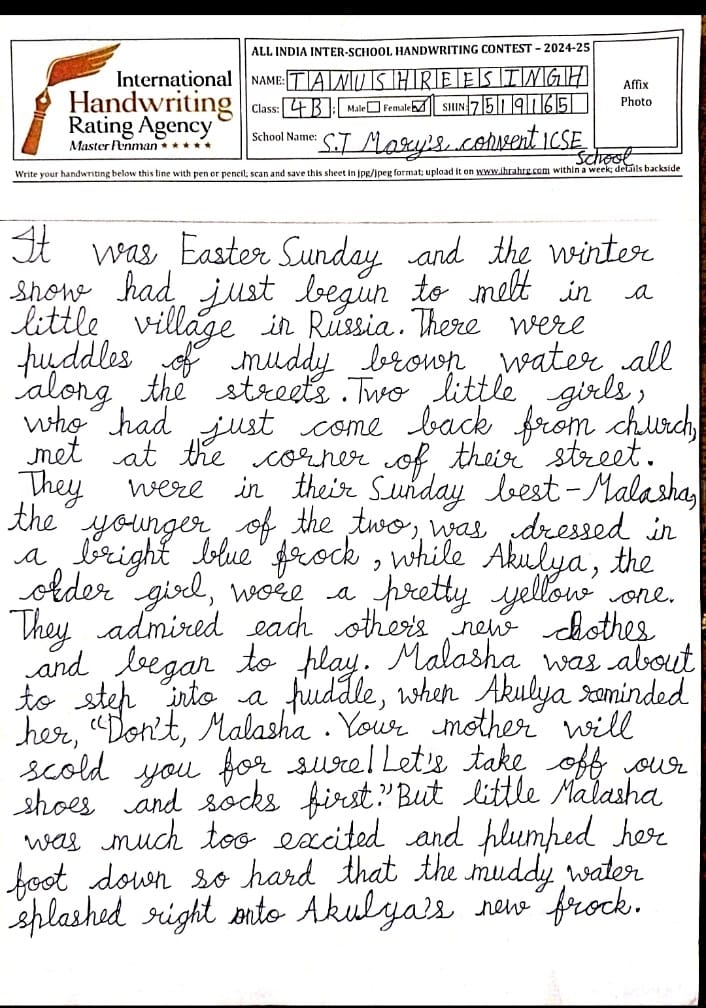 ALL INDIA INTER-SCHOOL HANDWRITING CONTEST – 2024-25
International
Handwriting
Rating Agency
Master Penman ★★★★★
NAME: TANUSHREE SINGH
Class: 4B ; Male☐ Female☑ SHIN: 7519165
School Name: S.T Mary's convent ICSE
School
Affix
Photo
Write your handwriting below this line with pen or pencil; scan and save this sheet in jpg/jpeg format; upload it on www.ihrahrg.com within a week; details backside
It was Easter Sunday and the winter
snow had just begun to melt in a
little village in Russia. There were
puddles of muddy brown water all
along the streets. Two little girls,
who had just come back from church,
met at the corner of their street.
They were in their Sunday best – Malasha,
the younger of the two, was dressed in
a bright blue frock, while Akulya, the
older girl, wore a pretty yellow one.
They admired each other's new clothes
and began to play. Malasha was about
to step into a puddle, when Akulya reminded
her, "Don't, Malasha. Your mother will
scold you for sure! Let's take off our
shoes and socks first." But little Malasha
was much too excited and plumped her
foot down so hard that the muddy water
splashed right onto Akulya's new frock.